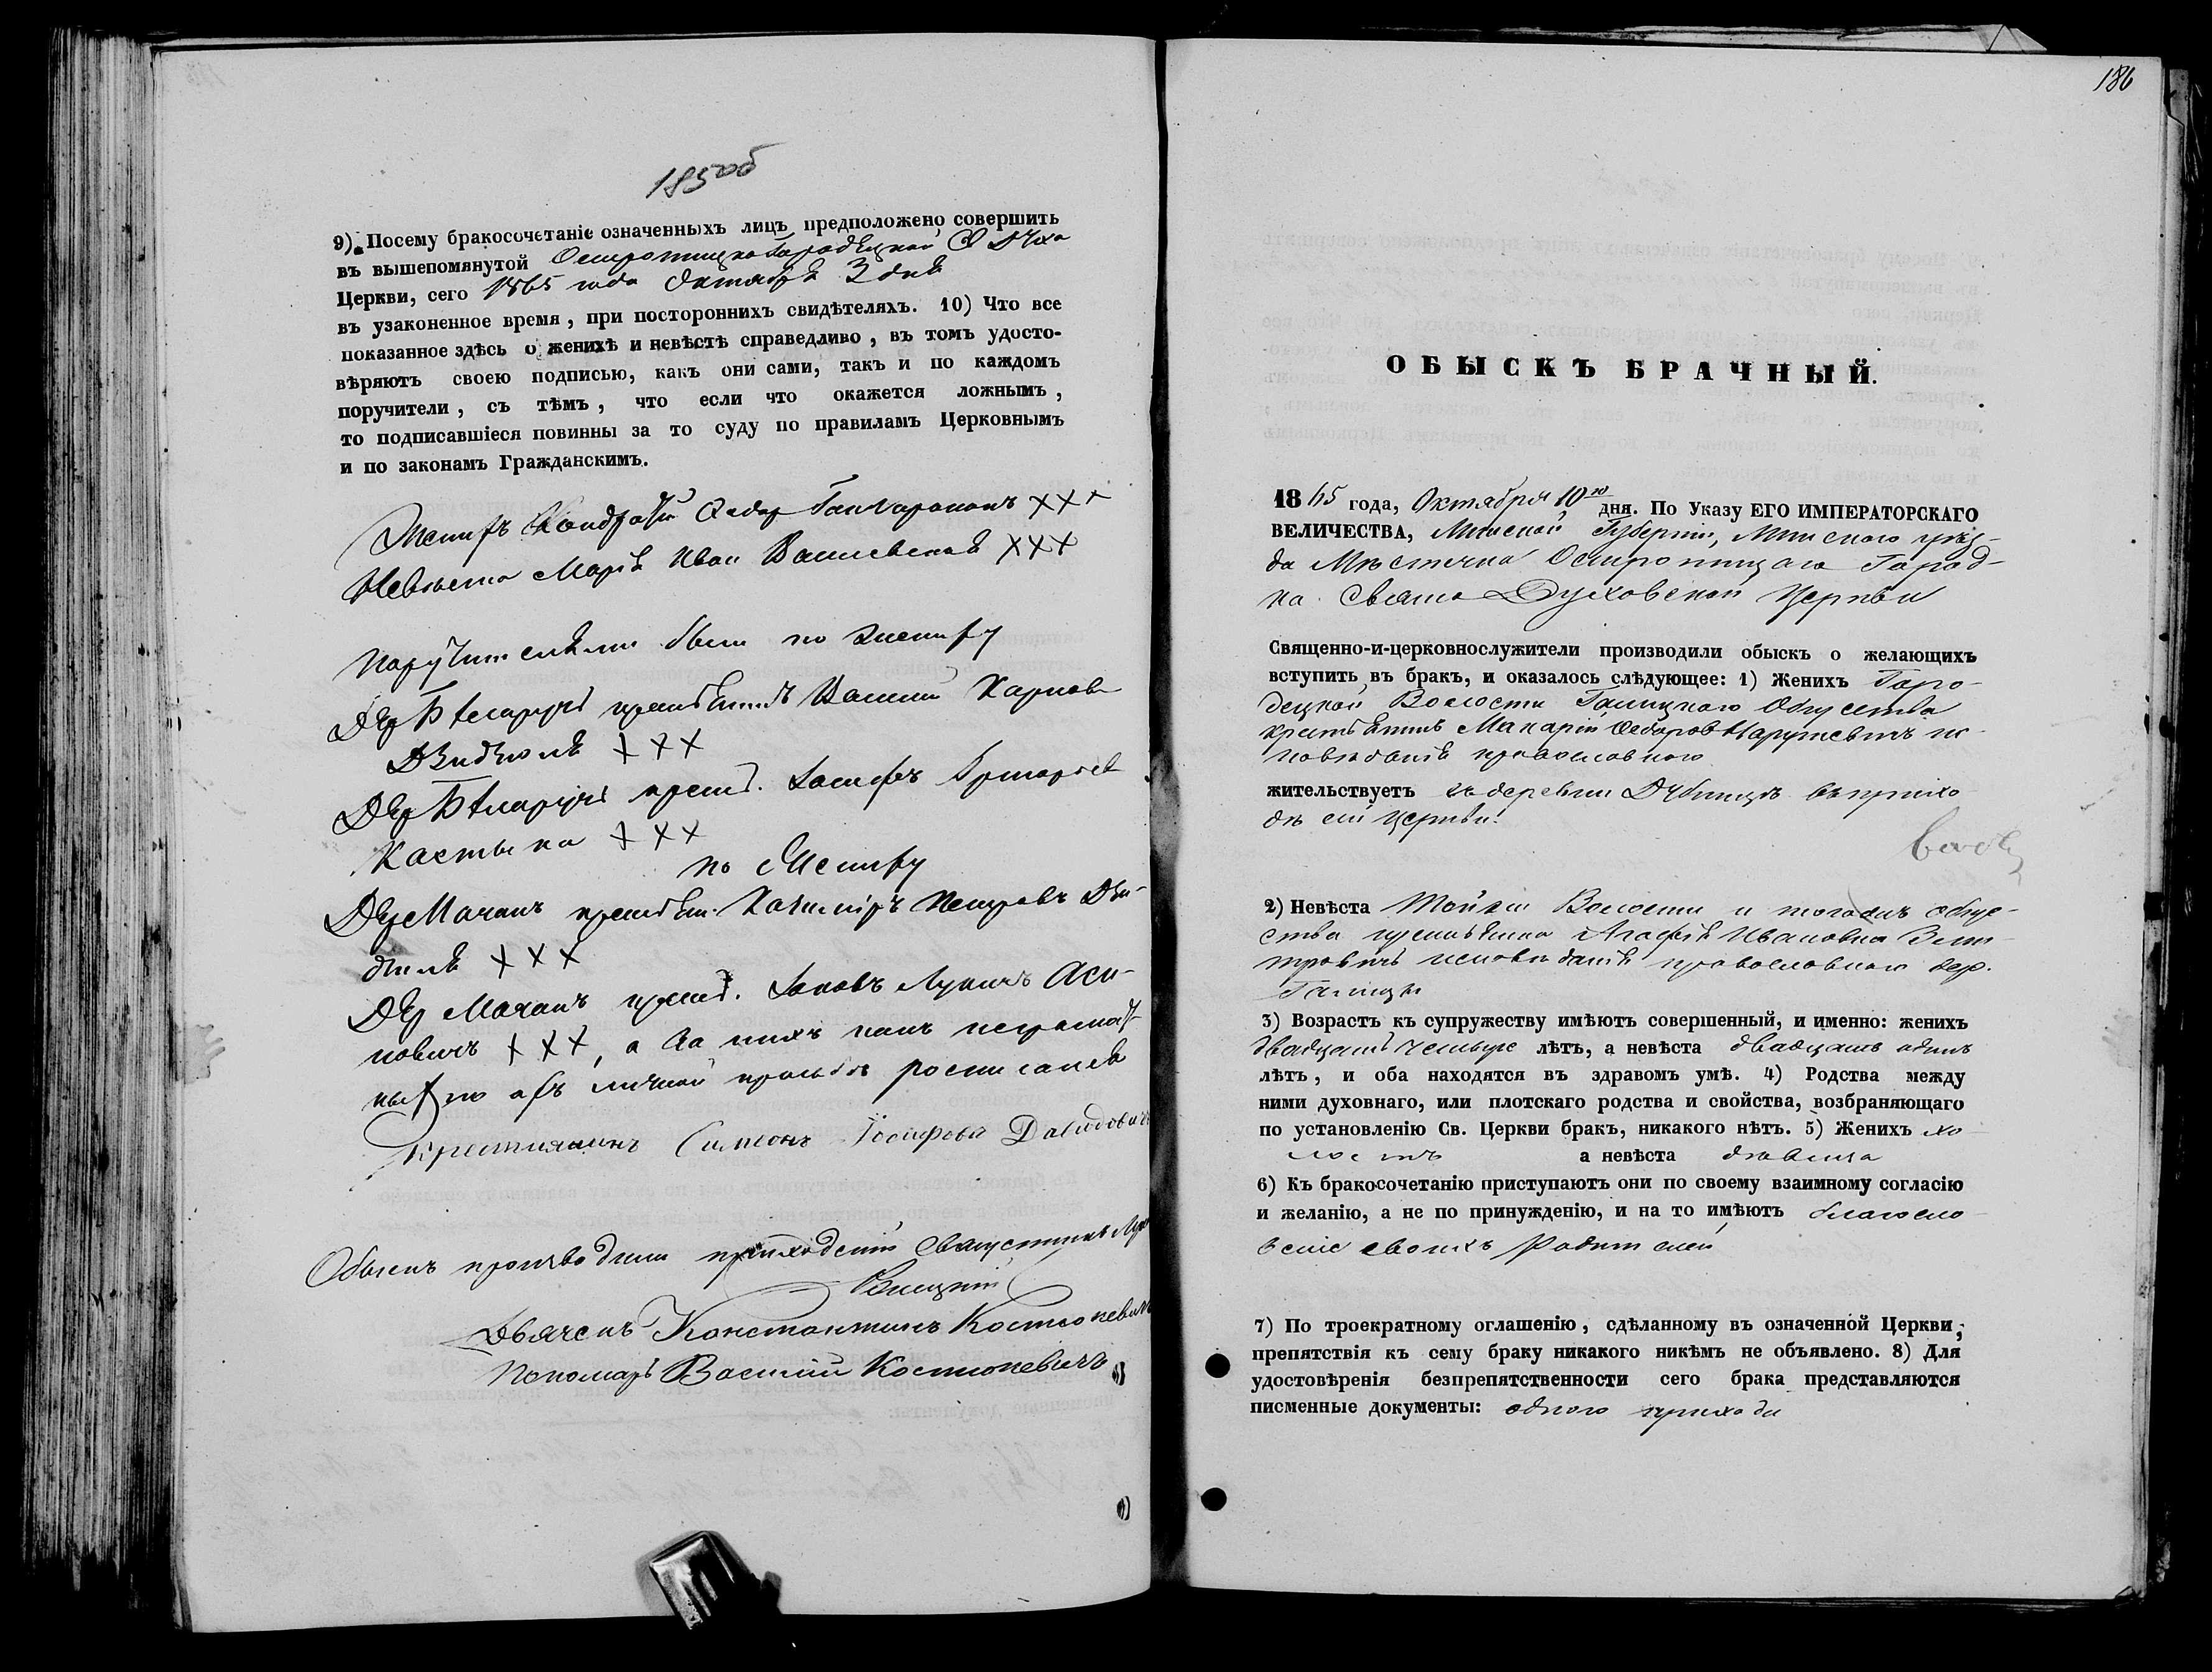 185об
9) Посему бракосочетаніе означенныхъ лицъ предположено совершить
въ вышепомянутой Остротицко Городецкой С Духо
Церкви, сего 1865 года Октября 3 дня
въ узаконенное время, при постороннихъ свидѣтеляхъ. 10) Что все
показанное здѣсь о женихѣ и невѣстѣ справедливо, въ томъ удосто-
вѣряютъ своею подписью, какъ они сами, такъ и по каждомъ
поручители, съ тѣмъ, что если что окажется ложнымъ,
то подписавшіеся повинны за то суду по правиламъ Церковнымъ
и по законамъ Гражданскимъ.
Женихъ Кондратій Ѳедор Ганчаронокъ ХХХ
Невѣста Марія Иван ХХХ
Поручителями были по жениху
Дер Бѣларучи крестьянинъ Василій Карпов
ХХХ
Дер Бѣларучи крест. Іосифъ Григорьев
Х Х Х
по Жениху
Дер Мочанъ крестьян. Казиміръ Петровъ Дзи-
Х Х Х
Дер Мочанъ крест. Яковъ Лукичъ Аси-
повичъ Х Х Х, а за нихъ какъ неграмот-
ныхъ по ихъ личной просьбѣ росписался
Крестиянинъ Симеонъ Іосифовъ Давидовичъ
Обыскъ производили приходскій Священникъ
Дьячекъ Константинъ
Пономарь Василій
186
ОБЫСКЪ БРАЧНЫЙ.
1865 года, Октября 10го дня. По Указу ЕГО ИМПЕРАТОРСКАГО
ВЕЛИЧЕСТВА, Минской Губерніи, Минского уѣз-
да Мѣстечка Острошицкаго Город-
ка Свято Духовской Церкви
Священно-и-церковнослужители производили обыскъ о желающихъ
вступить въ бракъ, и оказалось слѣдующее: 1) Женихъ Горо-
децкой Волости Галицкаго Общества
крестьянинъ Макарій Ѳедоров Нарушевичъ ис-
повѣданія православного
жительствуетъ въ деревни Дубницѣ въ прихо
дѣ сей Церкви.
2) Невѣста Тойже Волости и тогожъ обще-
ства крестьянка Агафія Ивановна
исповѣданія православного дер.
Галицы
3) Возрастъ къ супружеству имѣютъ совершенный, и именно: женихъ
двадцать четыре лѣтъ, а невѣста двадцать одинъ
лѣтъ, и оба находятся въ здравомъ умѣ. 4) Родства между
ними духовнаго, или плотскаго родства и свойства, возбраняющаго
по установленію Св. Церкви бракъ, никакого нѣтъ. 5) Женихъ хо-
лостъ а невѣста дѣвица
6) Къ бракосочетанію приступаютъ они по своему взаимному согласію
и желанію, а не по принужденію, и на то имѣютъ благосло-
веніе своихъ Родителей
7) По троекратному оглашенію, сдѣланному въ означенной Церкви,
препятствія къ сему браку никакого никѣмъ не объявлено. 8) Для
удостовѣренія безпрепятственности сего брака представляются
писменные документы: одного прихода